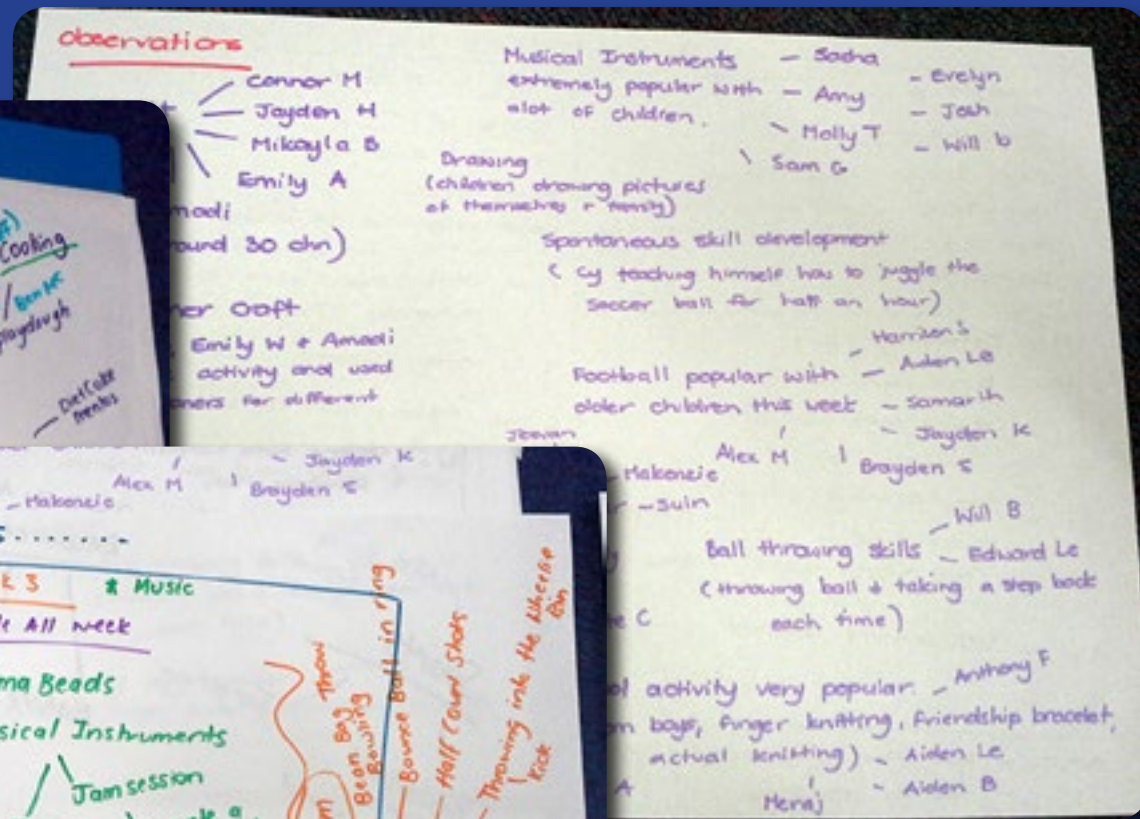 observations
Connor M
Jayden H
Mikayla B
Emily A
madi
ound 30 chn)
ner Ooft
Emily W & Amadi
activity and used
ners for different
Musical Instruments - Sasha
extremely popular with - Amy
alot of children.
Molly T
Sam G
- Evelyn
- Josh
- Will b
Drawing
(children drawing pictures
of themselves + family)
Spontaneous skill development
( Cy teaching himself how to juggle the
soccer ball for half an hour)
Football popular with - Aiden Le
older children this week - Samarth
Harrison S
- Jayden K
Alex M
Brayden S
Jeevan
- Makenzie
- Suin
Ball throwing skills - Edward Le
Will B
(throwing ball + taking a step back
each time)
e C
ol activity very popular. - Anthony F
m boys, finger knitting, friendship bracelet,
actual knitting) - Aiden Le
- Aiden B
A
Meraj
Cooking
playdough
Diet Coke
mentos
- Jayden K
Alex M
Brayden S
- Makenzie
S........
K 3
* Music
All week
ma Beads
sical Instruments
Jam session
Bean Bag Throw
Bowling
Bounce Ball in ring
Half Court Shots
Throwing into the Wheelie Bin
Kick